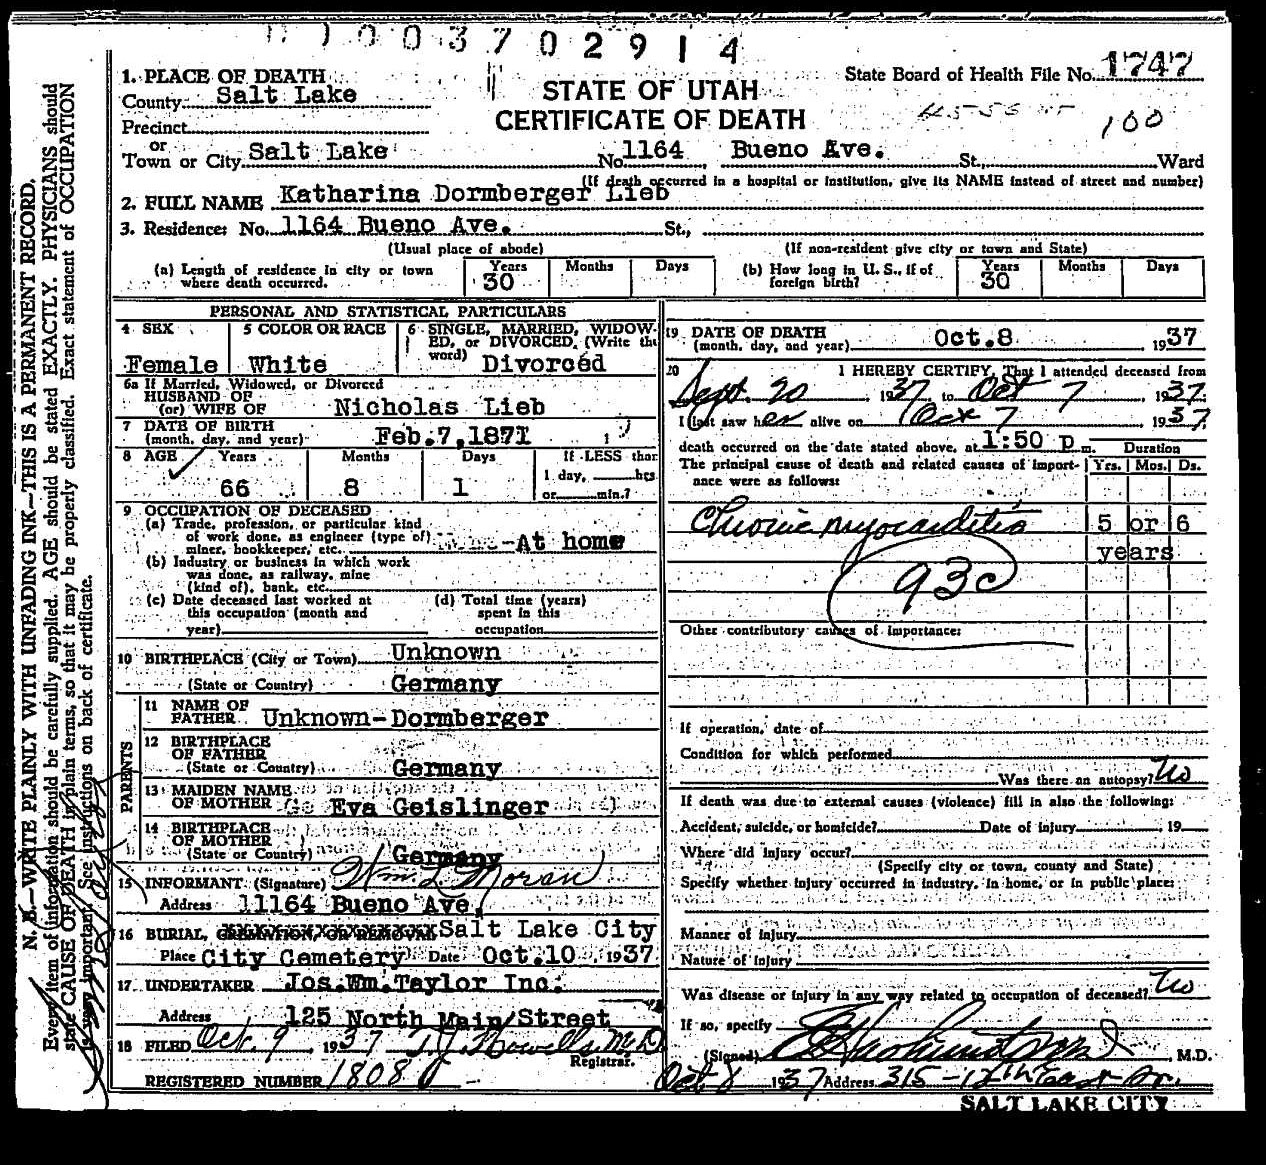 003702914
1. PLACE OF DEATH
County Salt Lake
STATE OF UTAH
State Board of Health File No. 1747
Precinct
CERTIFICATE OF DEATH
100
or
Town or City Salt Lake No. 1164 Bueno Ave. St., Ward
(If death occurred in a hospital or institution, give its NAME instead of street and number)
2. FULL NAME Katharina Dormberger Lieb
3. Residence: No. 1164 Bueno Ave. St.,
(Usual place of abode) (If non-resident give city or town and State)
(a) Length of residence in city or town where death occurred. Years 30 Months Days
(b) How long in U. S., if of foreign birth? Years 30 Months Days
PERSONAL AND STATISTICAL PARTICULARS
4 SEX Female
5 COLOR OR RACE White
6 SINGLE, MARRIED, WIDOW-
ED, or DIVORCED, (Write the
word) Divorced
6a If Married, Widowed, or Divorced
HUSBAND OF
(or) WIFE OF Nicholas Lieb
7 DATE OF BIRTH
(month, day, and year) Feb.7,1871
8 AGE Years 66 Months 8 Days 1
If LESS than
1 day, hrs.
or min.?
9 OCCUPATION OF DECEASED
(a) Trade, profession, or particular kind
of work done, as engineer (type of)
miner, bookkeeper, etc. -At home
(b) Industry or business in which work
was done, as railway, mine
(kind of), bank, etc.
(c) Date deceased last worked at
this occupation (month and
year)
(d) Total time (years)
spent in this
occupation
10 BIRTHPLACE (City or Town) Unknown
(State or Country) Germany
PARENTS
11 NAME OF
FATHER Unknown-Dormberger
12 BIRTHPLACE
OF FATHER
(State or Country) Germany
13 MAIDEN NAME
OF MOTHER Eva Geislinger
14 BIRTHPLACE
OF MOTHER
(State or Country) Germany
15 INFORMANT (Signature) Wm. L. Moran
Address 11164 Bueno Ave.
16 BURIAL, CREMATION, OR REMOVAL Salt Lake City
Place City Cemetery Date Oct.10 1937
17 UNDERTAKER Jos.Wm.Taylor Inc.
Address 125 North Main Street
18 FILED Oct. 9 1937 T.J. Howells M.D.
Registrar.
REGISTERED NUMBER 1808
19 DATE OF DEATH
(month, day, and year) Oct.8 1937
20 I HEREBY CERTIFY, That I attended deceased from
Sept. 20, 1937, to Oct 7, 1937.
I last saw her alive on Oct 7 1937.
death occurred on the date stated above, at 1:50 p m. Duration
The principal cause of death and related causes of import-
ance were as follows: Yrs. Mos. Ds.
Chronic myocarditis 5 or 6
years
93c
Other contributory causes of importance:
If operation, date of
Condition for which performed
Was there an autopsy? No
If death was due to external causes (violence) fill in also the following:
Accident, suicide, or homicide? Date of injury 19
Where did injury occur?
(Specify city or town, county and State)
Specify whether injury occurred in industry, in home, or in public place:
Manner of injury
Nature of injury
Was disease or injury in any way related to occupation of deceased? No
If so, specify
(Signed) M.D.
Oct 8 1937 Address 315-12th East St.
SALT LAKE CITY
N. B.—WRITE PLAINLY WITH UNFADING INK—THIS IS A PERMANENT RECORD.
Every item of information should be carefully supplied. AGE should be stated EXACTLY. PHYSICIANS should
state CAUSE OF DEATH in plain terms, so that it may be properly classified. Exact statement of OCCUPATION
is very important. See instructions on back of certificate.